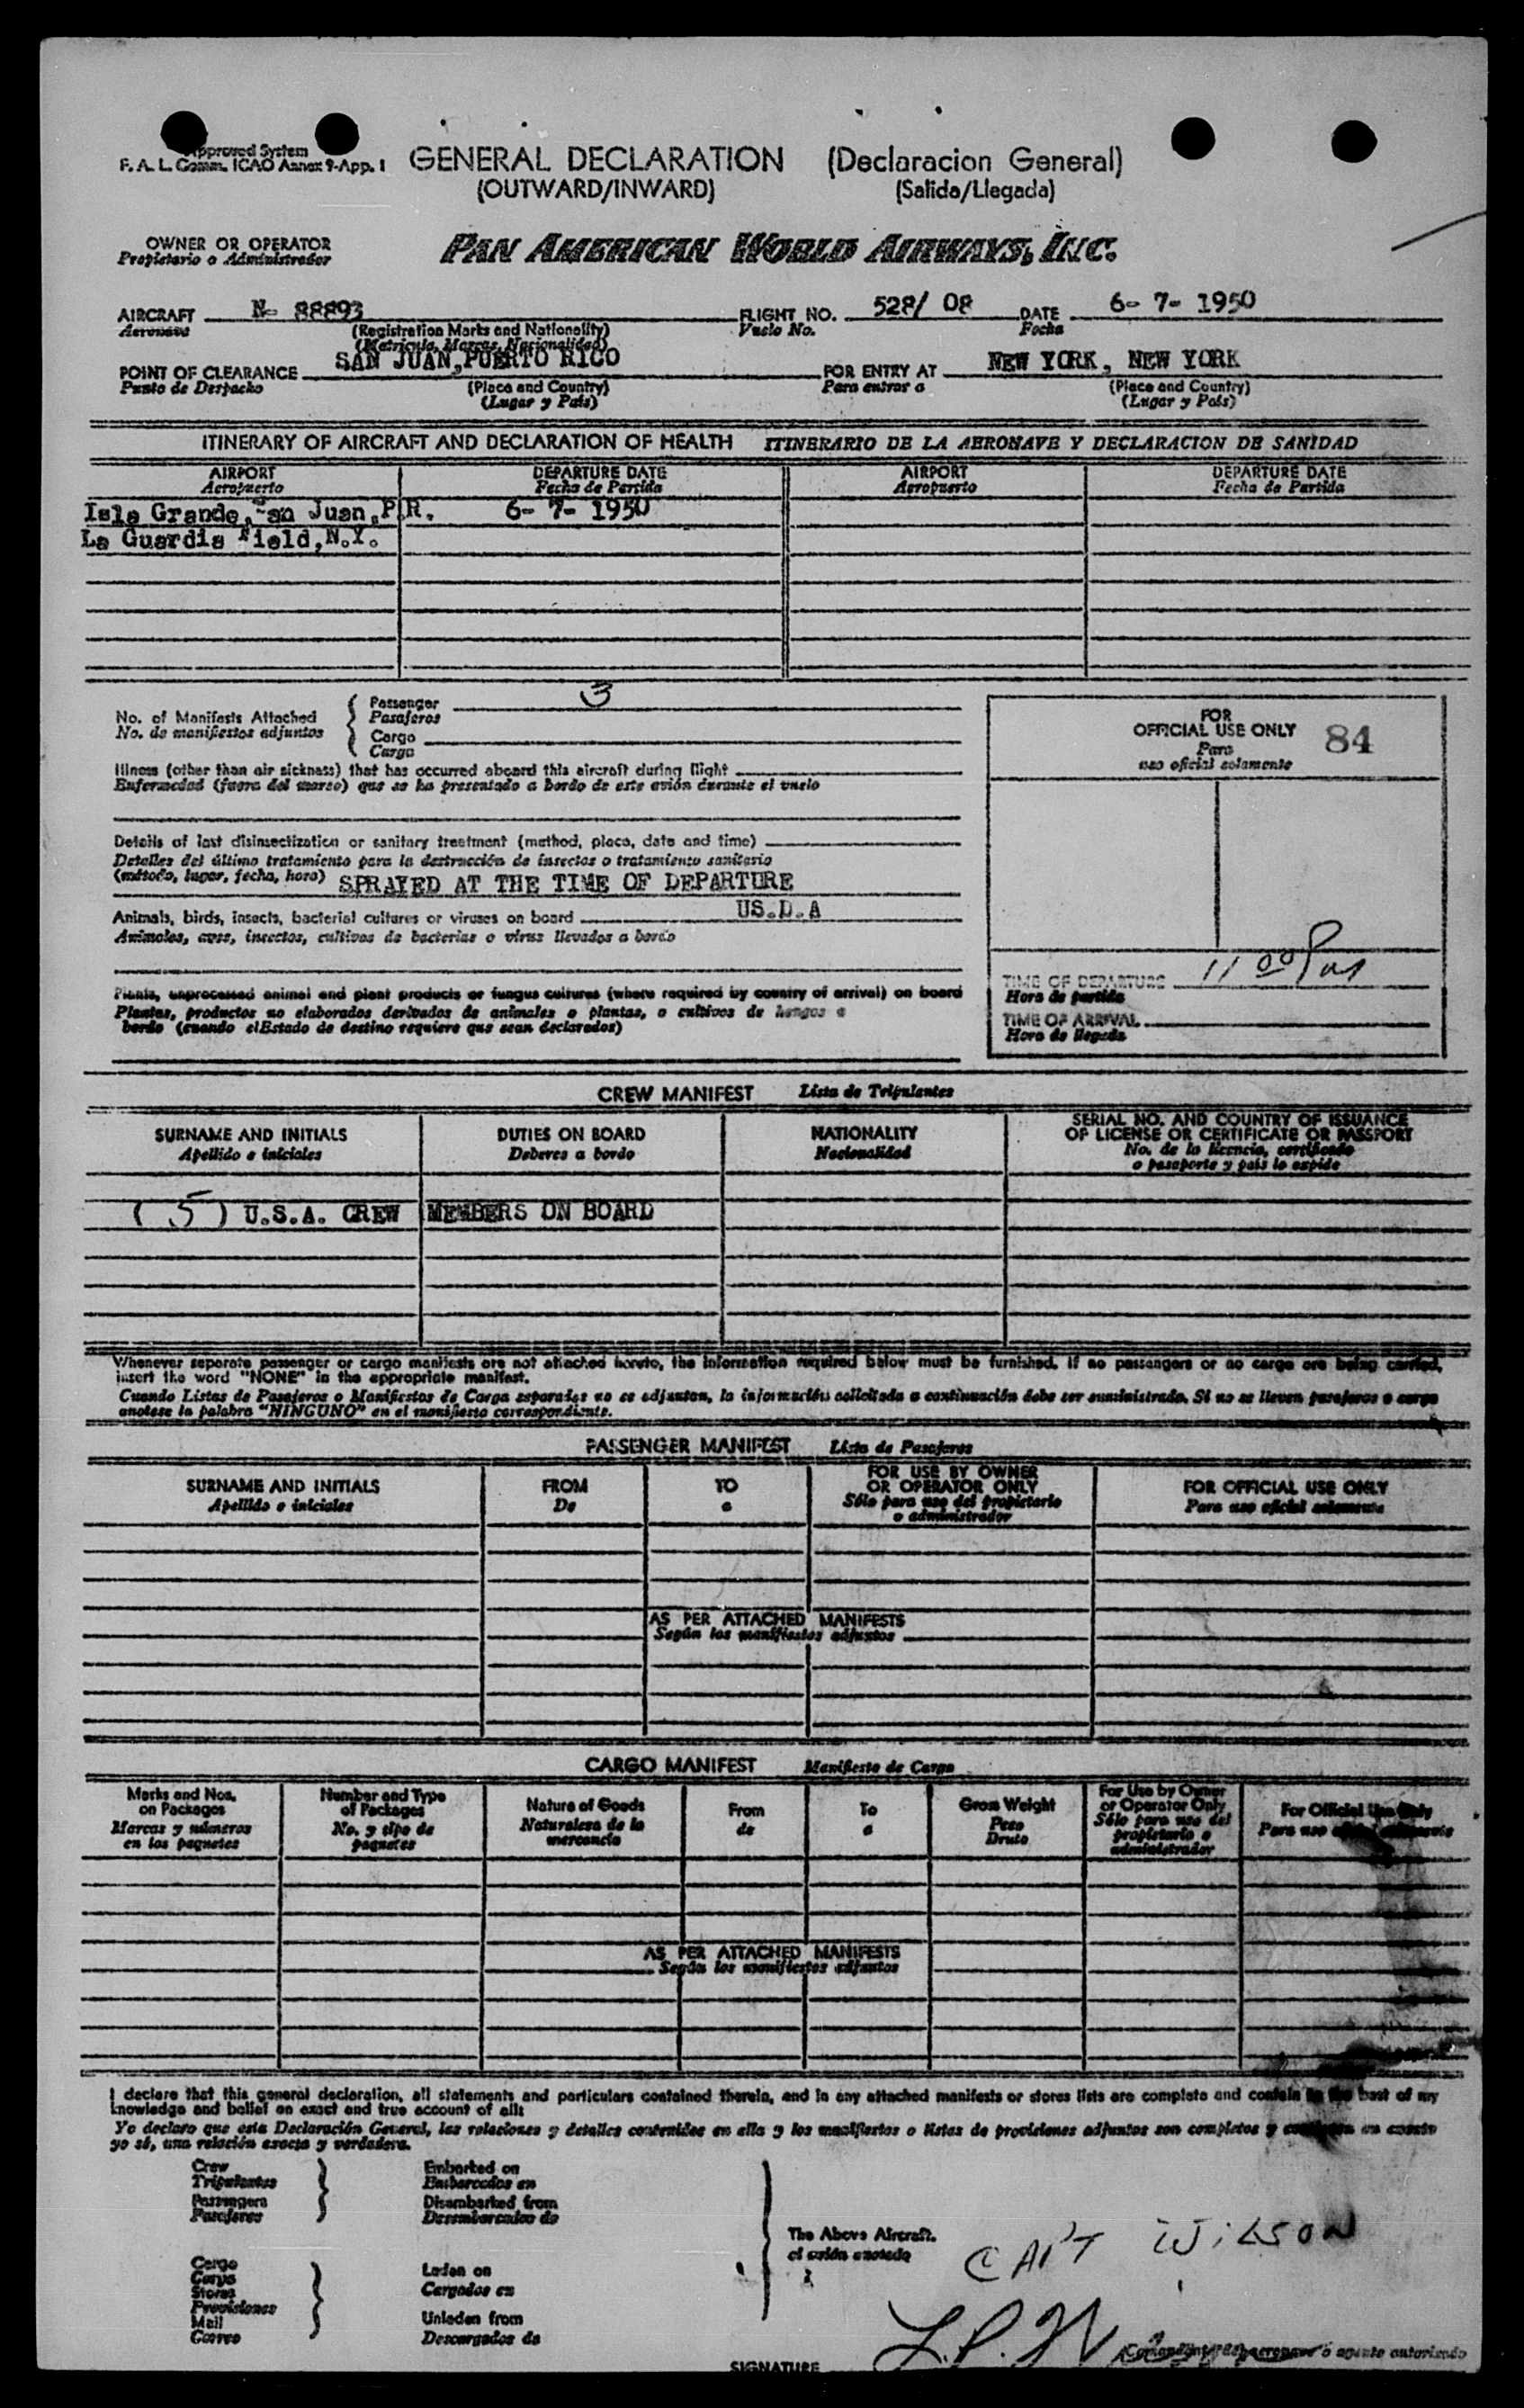 Approved System
F. A. L. Comm. ICAO Annex 9-App. 1
GENERAL DECLARATION (Declaracion General)
(OUTWARD/INWARD) (Salida/Llegada)
OWNER OR OPERATOR
Propietario o Administrador
PAN AMERICAN WORLD AIRWAYS, INC.
AIRCRAFT N- 88893 FLIGHT NO. 528/ 08 DATE 6- 7- 1950
Aeronave (Registration Marks and Nationality) Vuelo No. Fecha
(Matricula, Marcas, Nacionalidad)
POINT OF CLEARANCE SAN JUAN, PUERTO RICO FOR ENTRY AT NEW YORK, NEW YORK
Punto de Despacho (Place and Country) Para entrar a (Place and Country)
(Lugar y País) (Lugar y País)
ITINERARY OF AIRCRAFT AND DECLARATION OF HEALTH ITINERARIO DE LA AERONAVE Y DECLARACION DE SANIDAD
AIRPORT DEPARTURE DATE AIRPORT DEPARTURE DATE
Aeropuerto Fecha de Partida Aeropuerto Fecha de Partida
Isla Grande, San Juan, P.R. 6- 7- 1950
La Guardia Field, N.Y.
No. of Manifests Attached
No. de manifiestos adjuntos
Passenger 3
Pasajeros
Cargo
Carga
Illness (other than air sickness) that has occurred aboard this aircraft during flight
Enfermedad (fuera del mareo) que se ha presentado a bordo de este avión durante el vuelo
Details of last disinsectization or sanitary treatment (method, place, date and time)
Detalles del último tratamiento para la destrucción de insectos o tratamiento sanitario
(método, lugar, fecha, hora) SPRAYED AT THE TIME OF DEPARTURE
Animals, birds, insects, bacterial cultures or viruses on board US.D.A
Animales, aves, insectos, cultivos de bacterias o virus llevados a bordo
Plants, unprocessed animal and plant products or fungus cultures (where required by country of arrival) on board
Plantas, productos no elaborados derivados de animales o plantas, o cultivos de hongos a
bordo (cuando elEstado de destino requiere que sean declarados)
FOR
OFFICIAL USE ONLY 84
Para
uso oficial solamente
TIME OF DEPARTURE 11 00 Pm
Hora de partida
TIME OF ARRIVAL
Hora de llegada
CREW MANIFEST Lista de Tripulantes
SURNAME AND INITIALS DUTIES ON BOARD NATIONALITY SERIAL NO. AND COUNTRY OF ISSUANCE
OF LICENSE OR CERTIFICATE OR PASSPORT
Apellido e iniciales Deberes a bordo Nacionalidad No. de la licencia, certificado
o pasaporte y país lo expide
( 5 ) U.S.A. CREW MEMBERS ON BOARD
Whenever separate passenger or cargo manifests are not attached hereto, the information required below must be furnished. If no passengers or no cargo are being carried,
insert the word "NONE" in the appropriate manifest.
Cuando Listas de Pasajeros o Manifiestos de Carga separadas no se adjuntan, la información solicitada a continuación debe ser suministrada. Si no se lleven pasajeros o carga
anotese la palabra "NINGUNO" en el manifiesto correspondiente.
PASSENGER MANIFEST Lista de Pasajeros
SURNAME AND INITIALS FROM TO FOR USE BY OWNER
OR OPERATOR ONLY FOR OFFICIAL USE ONLY
Apellido e iniciales De a Sólo para uso del propietario
o administrador Para uso oficial solamente
AS PER ATTACHED MANIFESTS
Según los manifiestos adjuntos
CARGO MANIFEST Manifiesto de Carga
Marks and Nos.
on Packages
Marcas y números
en los paquetes
Number and Type
of Packages
No. y tipo de
paquetes
Nature of Goods
Naturaleza de la
mercancía
From
de
To
a
Gross Weight
Peso
Bruto
For Use by Owner
or Operator Only
Sólo para uso del
propietario o
administrador
For Official Use Only
Para uso oficial solamente
AS PER ATTACHED MANIFESTS
Según los manifiestos adjuntos
I declare that this general declaration, all statements and particulars contained therein, and in any attached manifests or stores lists are complete and contain to the best of my
knowledge and belief an exact and true account of all:
Yo declaro que esta Declaración General, las relaciones y detalles contenidos en ella y los manifiestos o listas de provisiones adjuntos son completos y en cuanto
yo sé, una relación exacta y verdadera.
Crew
Tripulantes
Passengers
Pasajeros
Embarked on
Embarcados en
Disembarked from
Desembarcados de
Cargo
Carga
Stores
Provisiones
Mail
Correo
Laden on
Cargados en
Unladen from
Descargados de
The Above Aircraft.
el avión anotado
CAPT WILSON
L.P. Wilson
SIGNATURE
Comandante de aeronave o agente autorizado